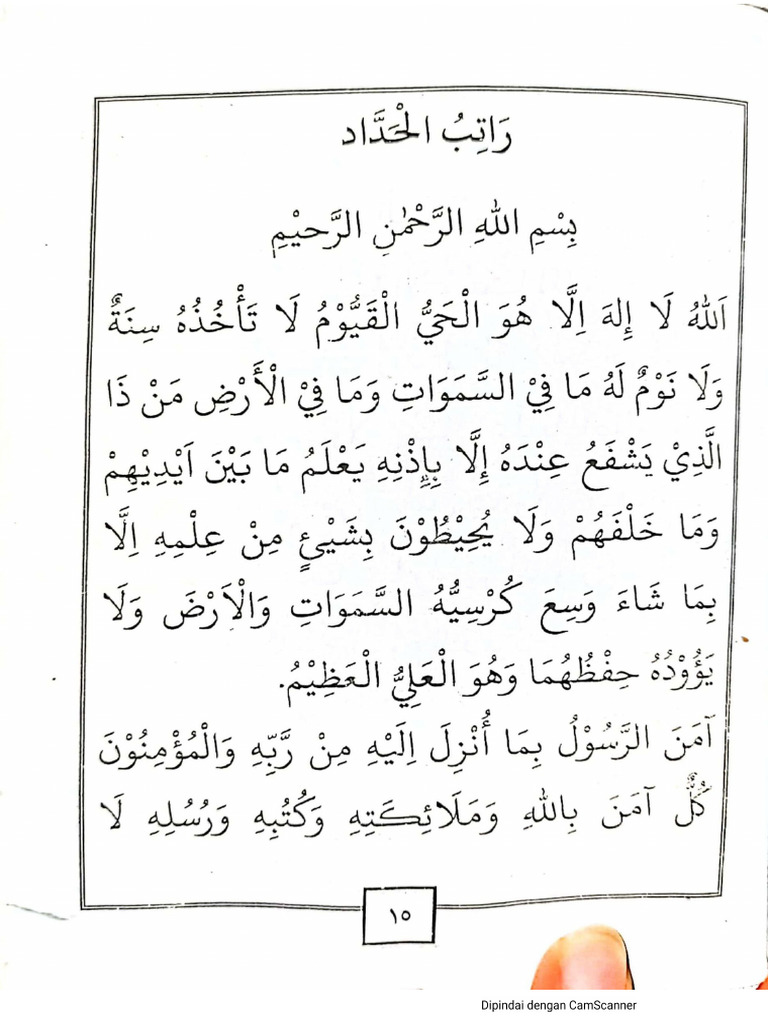 رَاتِبُ الْحَدَّاد
بِسْمِ اللهِ الرَّحْمٰنِ الرَّحِيْمِ
اَللهُ لَا إِلهَ اِلَّا هُوَ الْحَيُّ الْقَيُّوْمُ لَا تَأْخُذُهُ سِنَةٌ
وَلَا نَوْمٌ لَهُ مَا فِيْ السَّمَوَاتِ وَمَا فِيْ الْأَرْضِ مَنْ ذَا
الَّذِيْ يَشْفَعُ عِنْدَهُ إِلَّا بِإِذْنِهِ يَعْلَمُ مَا بَيْنَ اَيْدِيْهِمْ
وَمَا خَلْفَهُمْ وَلَا يُحِيْطُوْنَ بِشَيْئٍ مِنْ عِلْمِهِ اِلَّا
بِمَا شَاءَ وَسِعَ كُرْسِيُّهُ السَّمَوَاتِ وَالْاَرْضَ وَلَا
يَؤُوْدُهُ حِفْظُهُمَا وَهُوَ الْعَلِيُّ الْعَظِيْمُ.
آمَنَ الرَّسُوْلُ بِمَا أُنْزِلَ اِلَيْهِ مِنْ رَّبِّهِ وَالْمُؤْمِنُوْنَ
كُلٌّ آمَنَ بِاللهِ وَمَلَائِكَتِهِ وَكُتُبِهِ وَرُسُلِهِ لَا
١٥
Dipindai dengan CamScanner